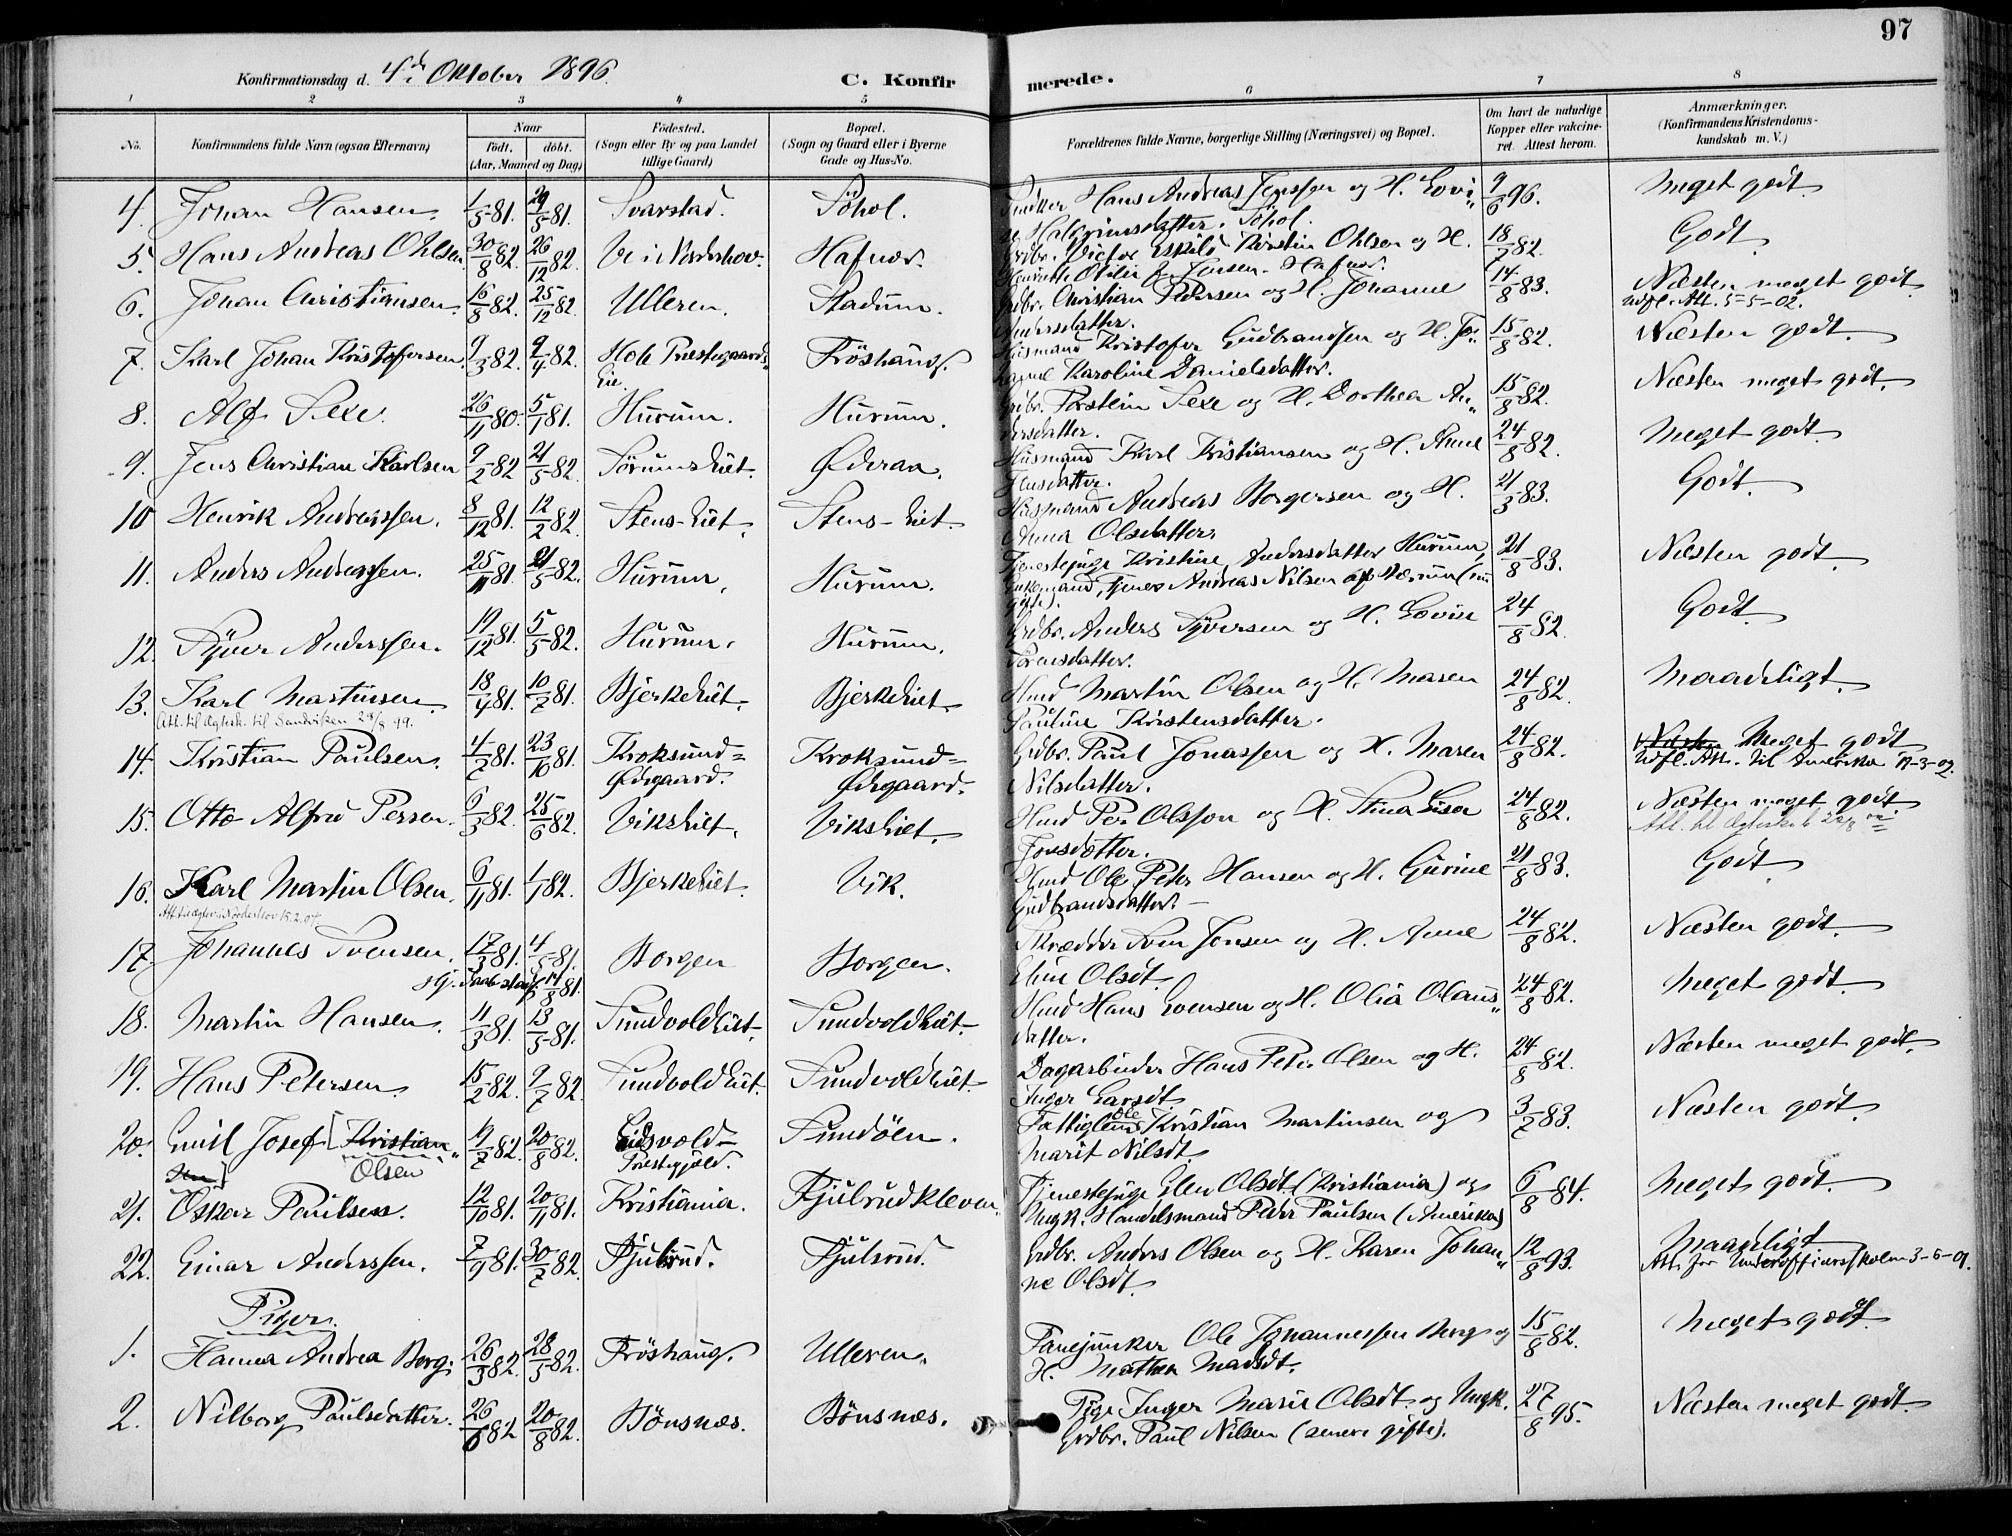 97
Konfirmationsdag d. 4de Oktober 1896. C. Konfirmerede.
1 2 3 4 5 6 7 8
No. Konfirmandens fulde Navn (ogsaa Efternavn) Naar født. døbt. (Aar, Maaned og Dag) Fødested. (Sogn eller By og paa Landet tillige Gaard) Bopæl. (Sogn og Gaard eller i Byerne Gade og Hus-No. Forældrenes fulde Navne, borgerlige Stilling (Næringsvei) og Bopæl. Om havt de naturlige Kopper eller vakcineret. Attest herom. Anmærkninger. (Konfirmandens Kristendomskundskab m. V.)
4. Johan Hansen. 1/5 81. 29/5 81. Svarstad. Söhol. Hans Andreas Jensen og H. Lovi„ 9/6 96. Meget godt.
se Halgrimsdatter. Söhol.
5. Hans Andreas Ohlsen. 30/8 82. 26/12 82. Ve i Norderhov. Hafnor. Grdbr. Victor Eskild Kerstin Ohlsen og H. 18/7 82. Godt.
Henriette Otilie J. Jensen. Hafnor.
6. Johan Christiansen. 16/8 82. 25/12 82. Ulleren. Stadum. Grdbr. Christian Pedersen og H. Johanne 14/8 83. Næsten meget godt.
Andersdatter. Udfl. Att. 5-5-02.
7. Karl Johan Kristoffersen. 9/3 82. 9/4 82. Hole Prestegaards Eie. Fröshaug. Husmand Kristofer Gudbrandsen og H. Jo„ 15/8 82. Næsten godt.
hanne Karoline Danielsdatter.
8. Alf Sexe. 26/11 80. 5/1 81. Hurum. Hurum. Grdbr. Torstein Sexe og H. Dorthea An„ 15/8 82. Næsten meget godt.
dersdatter.
9. Jens Christian Karlsen 9/2 82 21/5 82. Sörumseiet. Ødéraa. Husmand Karl Kristiansen og H. Anne 24/8 82. Meget godt.
Jensdatter.
10 Henrik Andreassen. 8/12 81. 12/2 82. Stens-Eiet. Stens-Eiet. Husmand Andreas Borgersen og H. 21/3 83. Godt.
Anna Olsdatter.
11. Anders Andreassen. 25/11 81. 21/5 82. Hurum. Hurum. Tjenestepige Kristine Andersdatter Hurum, 21/8 83. Næsten godt.
Enkemand, tjener Andreas Nilsen af Bærum (nu
gifte).
12. Syver Anderssen. 19/12 81. 5/5 82. Hurum. Hurum. Grdbr. Anders Syversen og H. Lovise 24/8 82. Godt.
Sörensdatter.
13. Karl Martinsen. 18/4 81. 10/7 81. Bjerkeeiet. Bjerkeeiet. Hmd Martin Olsen og H. Maren 24/8 82. Maadeligt.
Att. til Ægtesk. til Sandviken 28/8 99. Pauline Kristensdatter.
14. Kristian Paulsen. 4/7 81. 23/10 81. Kroksund= Ødegaard. Kroksund= Ødegaard. Grdbr. Paul Jonassen og H. Maren 24/8 82. Næsten Meget godt
Nilsdatter. Udfl. Att. til Amerika 17-3-02.
15. Otto Alfred Persen. 6/3 82. 25/6 82. Vikseiet. Vikseiet. Hmd Per Olsson og H. Stina Lisa 24/8 82. Næsten meget godt
Jonsdotter.
16. Karl Martin Olsen. 6/11 81. 1/1 82. Bjerkeeiet. Vik. Hmd Ole Peter Hansen og H. Gurine 21/8 83. Godt.
Gudbrandsdatter.
17. Johannes Svensen. 17/3 81. 4/5 81. Borgen Borgen. Skrædder Sven Jonsen og H. Anne 24/8 82. Næsten godt.
Hj. Daab stadf. 14/8 81. Eline Olsdt.
18. Martin Hansen. 11/3 81. 13/5 81. Sundvoldeiet. Sundvoldeiet. Hmd Hans Evensen og H. Olia Olaus„ 24/8 82. Meget godt.
datter.
19. Hans Petersen. 15/2 82. 9/7 82. Sundvoldeiet. Sundvoldeiet. Dagarbeider Hans Peter Olsen og H. 24/8 82. Næsten meget godt.
Inger Larsdt
20. Emil Josef [Kristian„ sen] Olsen 19/7 82. 20/8 82. Eidsvold Prestegjeld. Sundöen. Fattiglem Ole Kristian Martinsen og 3/7 83. Næsten godt.
Marit Nilsdt.
21. Oskar Paulsen. 12/10 81. 20/11 81. Kristiania. Gjulsrudkleven. Tjenestepige Elen Olsdt. (Kristiania) og 6/8 84. Meget godt.
Ungk. Handelsmand Peder Paulsen (Amerika)
22. Einar Anderssen. 7/9 81. 30/7 82. Gjulsrud. Gjulsrud. Grdbr. Anders Olsen og H. Karen Johan„ 12/8 93. Maadeligt
ne Olsdt. Att. for Underofficersskolen 3-6-01.
Piger.
1. Hanna Andrea Berg. 26/3 82. 28/5 82. Fröshaug. Ulleren. Fanejunker Ole Johannessen Berg og 15/8 82. Meget godt.
H. Mathea Madsdt.
2. Nilborg Paulsdatter. 26/6 82 20/8 82. Bönsnæs. Bönsnæs. Pige Inger Marie Olsdt. og Ungk. 27/8 95. Næsten meget godt.
Grdbr. Paul Nilsen (senere gifte).